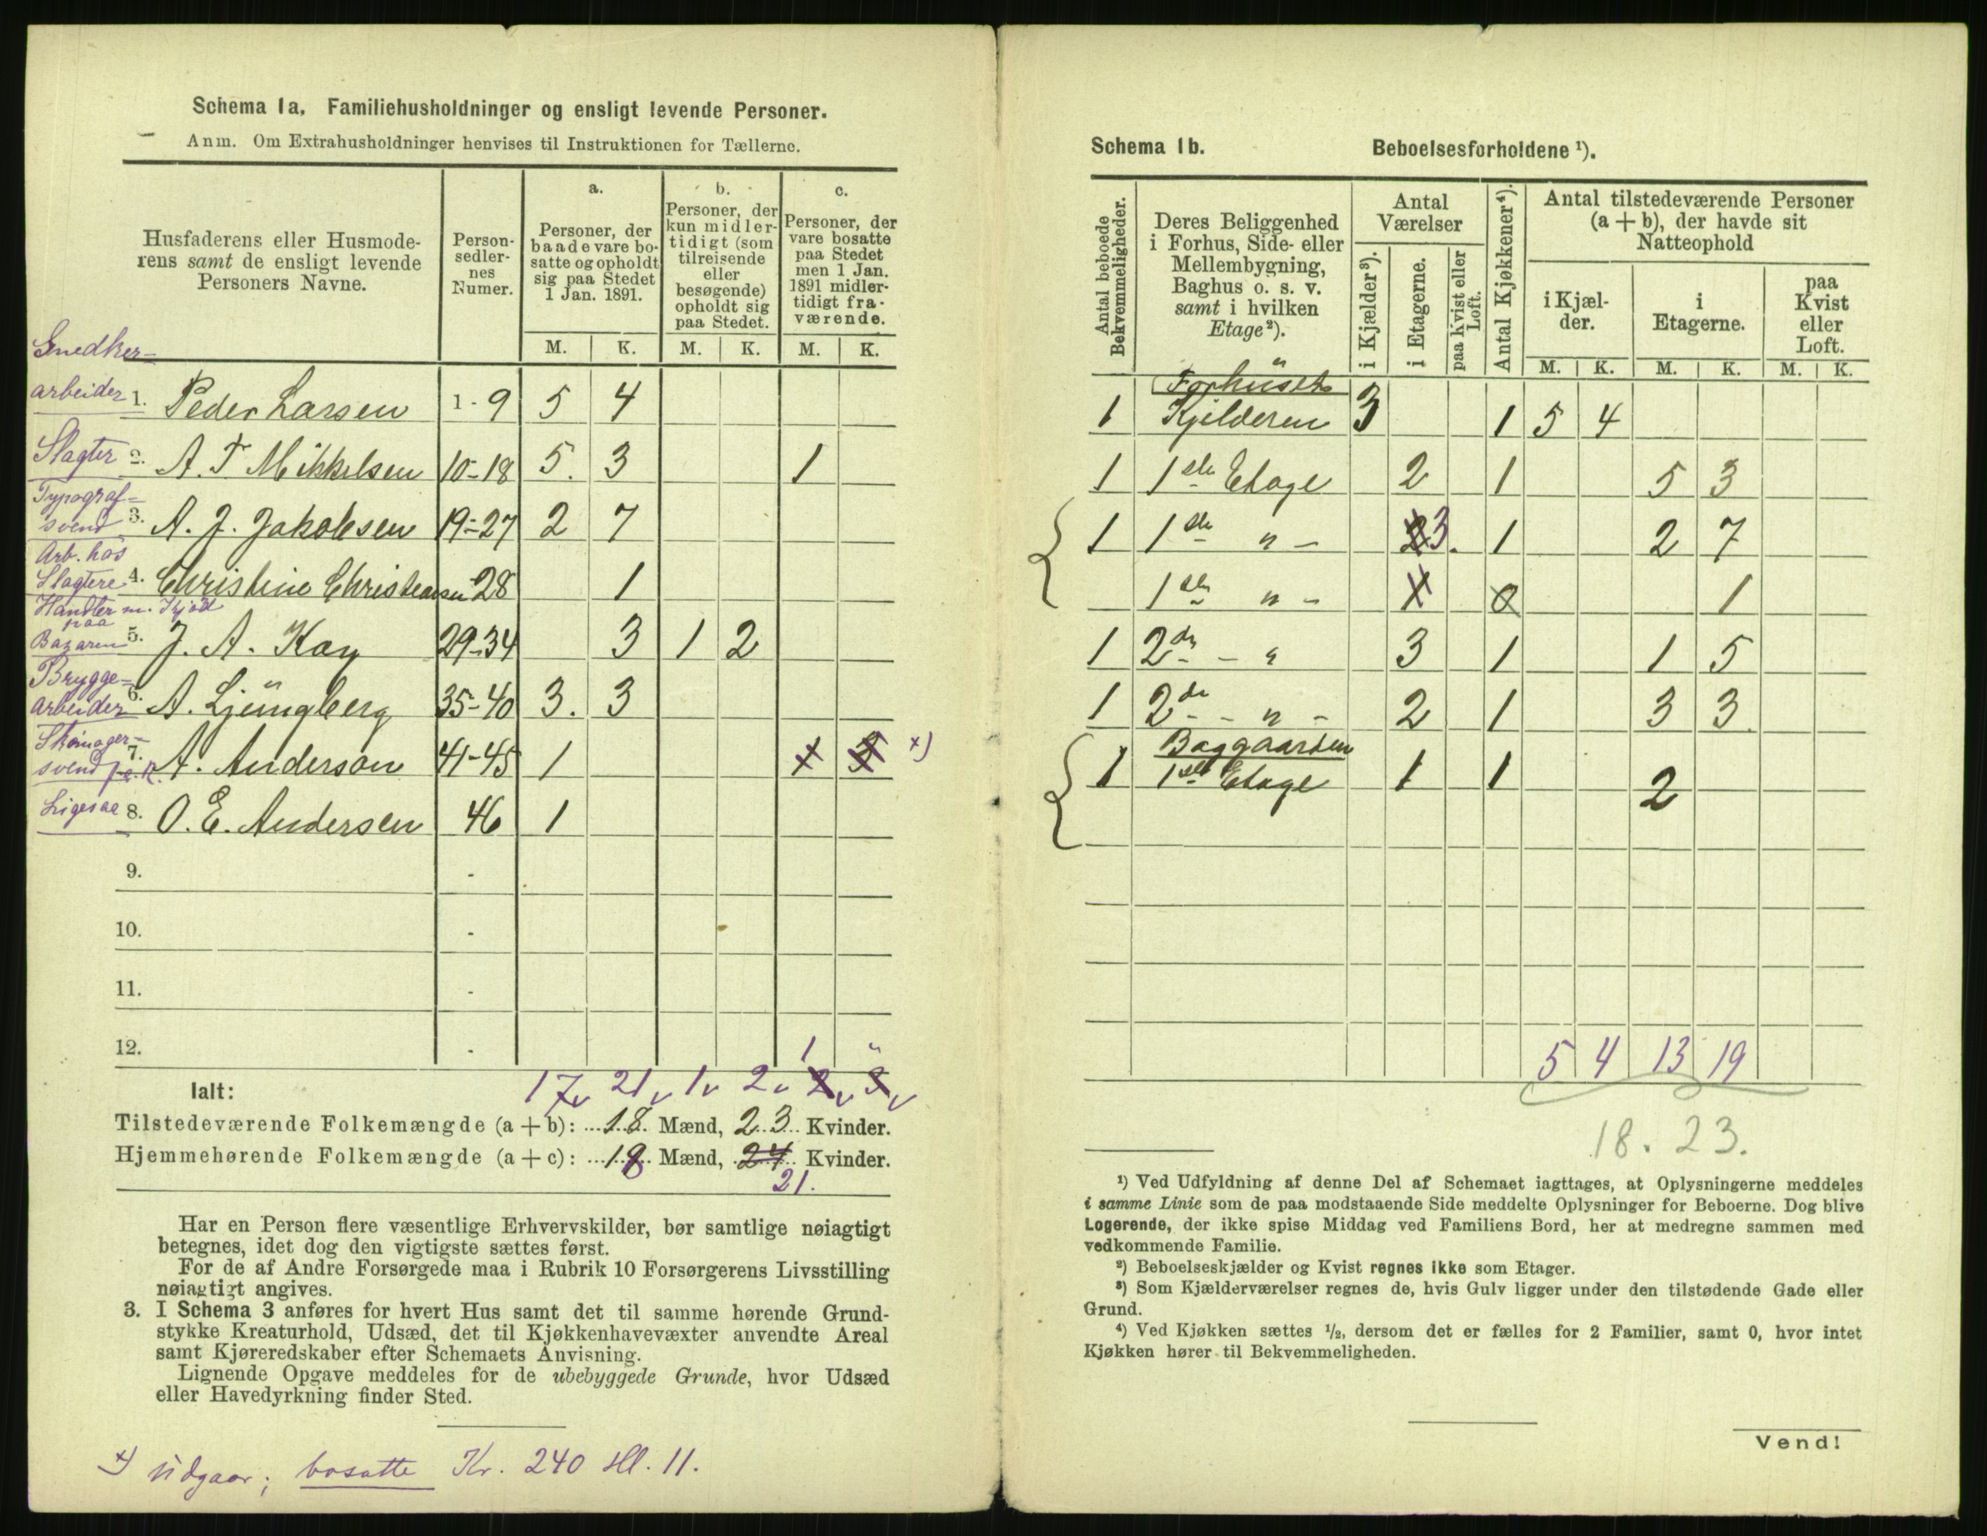 Schema 1a. Familiehusholdninger og ensligt levende Personer.
Anm. Om Extrahusholdninger henvises til Instruktionen for Tællerne.
Husfaderens eller Husmode-
rens samt de ensligt levende
Personers Navne.
Person-
sedler-
nes
Numer.
a.
Personer, der
baade vare bo-
satte og opholdt
sig paa Stedet
1 Jan. 1891.
b.
Personer, der
kun midler-
tidigt (som
tilreisende
eller
besøgende)
opholdt sig
paa Stedet.
c.
Personer, der
vare bosatte
paa Stedet
men 1 Jan.
1891 midler-
tidigt fra-
værende.
M. K. M. K. M. K.
Snedker-
arbeider 1. Peder Larsen 1-9 5 4
Slagter 2. A. T Mikkelsen 10-18 5. 3 1
Typograf-
svend 3. A. J. Jakobsen 19-27 2 7
Arb. hos
Slagtere 4. Christine Christensen 28 1
Handler m. Kjød
paa
Bazaren 5. J. A. Kay 29-34 3 1 2
Brygge-
arbeider 6. A. Ljungberg 35-40 3. 3
Skomager-
svend 7. A. Anderson 41-45 1 x)
Ligesaa 8. O. E. Andersen 46 1
9. -
10. -
11. -
12. -
1 "
Ialt: 17 21 1 2 2 3
Tilstedeværende Folkemængde (a + b): 18 Mænd, 23 Kvinder.
Hjemmehørende Folkemængde (a + c): 18 Mænd, 24 Kvinder.
21.
Har en Person flere væsentlige Erhvervskilder, bør samtlige nøiagtigt
betegnes, idet dog den vigtigste sættes først.
For de af Andre Forsørgede maa i Rubrik 10 Forsørgerens Livsstilling
nøiagtigt angives.
3. I Schema 3 anføres for hvert Hus samt det til samme hørende Grund-
stykke Kreaturhold, Udsæd, det til Kjøkkenhavevæxter anvendte Areal
samt Kjøreredskaber efter Schemaets Anvisning.
Lignende Opgave meddeles for de ubebyggede Grunde, hvor Udsæd
eller Havedyrkning finder Sted.
x) udgaar; bosatte Kr. 240 Hl. 11.
Schema 1b. Beboelsesforholdene ¹).
Antal beboede
Bekvemmeligheder.
Deres Beliggenhed
i Forhus, Side- eller
Mellembygning,
Baghus o. s. v.
samt i hvilken
Etage²).
Antal
Værelser
i Kjælder³).
i Etagerne.
paa Kvist eller
Loft.
Antal Kjøkkener⁴).
Antal tilstedeværende Personer
(a + b), der havde sit
Natteophold
i Kjæl-
der.
i
Etagerne.
paa
Kvist
eller
Loft.
M. K. M. K. M. K.
Forhuset
1 Kjelderen 3 1 5 4
1 1ste Etage 2 1 5 3
1 1ste " - 3. 1 2 7
1ste " - 0 1
1 2de - " 3 1 1 5
1 2de - " - 2 1 3 3
Baggaarden
1 1ste Etage 1 1 2
5 4 13 19
18. 23.
¹) Ved Udfyldning af denne Del af Schemaet iagttages, at Oplysningerne meddeles
i samme Linie som de paa modstaaende Side meddelte Oplysninger for Beboerne. Dog blive
Logerende, der ikke spise Middag ved Familiens Bord, her at medregne sammen med
vedkommende Familie.
²) Beboelseskjælder og Kvist regnes ikke som Etager.
³) Som Kjælderværelser regnes de, hvis Gulv ligger under den tilstødende Gade eller
Grund.
⁴) Ved Kjøkken sættes ½, dersom det er fælles for 2 Familier, samt 0, hvor intet
Kjøkken hører til Bekvemmeligheden.
Vend!